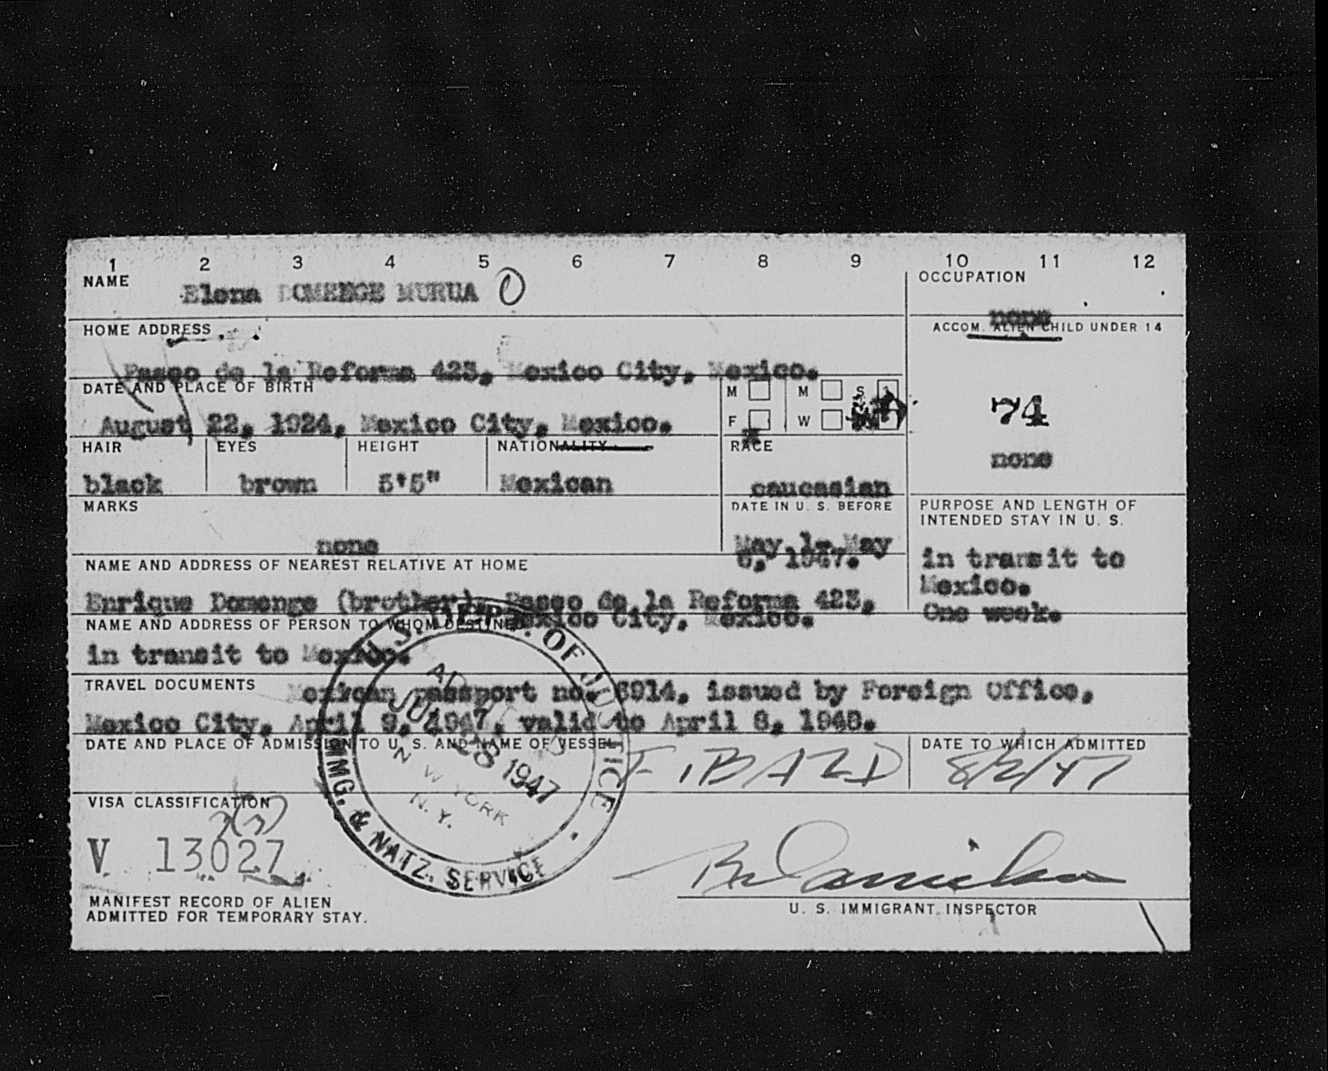 1 2 3 4 5 6 7 8 9 10 11 12
NAME
Elena DOMENGE MURUA
OCCUPATION
none
HOME ADDRESS
ACCOM. ALIEN CHILD UNDER 14
Paseo de la Reforma 423, Mexico City, Mexico.
DATE AND PLACE OF BIRTH
M M S
August 22, 1924, Mexico City, Mexico.
F W
74
HAIR EYES HEIGHT NATIONALITY RACE
none
black brown 5'5" Mexican caucasian
MARKS
DATE IN U. S. BEFORE
PURPOSE AND LENGTH OF
INTENDED STAY IN U. S.
none
May 1- May
6, 1947.
in transit to
Mexico.
One week.
NAME AND ADDRESS OF NEAREST RELATIVE AT HOME
Enrique Domenge (brother), Paseo de la Reforma 423,
Mexico City, Mexico.
NAME AND ADDRESS OF PERSON TO WHOM DESTINED
in transit to Mexico.
TRAVEL DOCUMENTS
Mexican passport no. 6914, issued by Foreign Office,
Mexico City, April 9, 1947, valid to April 8, 1948.
DATE AND PLACE OF ADMISSION TO U. S. AND NAME OF VESSEL
DATE TO WHICH ADMITTED
8/2/47
U. S. DEPT. OF JUSTICE
IMMG. & NATZ. SERVICE
ADMITTED
JUL 28 1947
NEW YORK
N. Y.
VISA CLASSIFICATION
3(3)
V 13027
MANIFEST RECORD OF ALIEN
ADMITTED FOR TEMPORARY STAY.
U. S. IMMIGRANT INSPECTOR